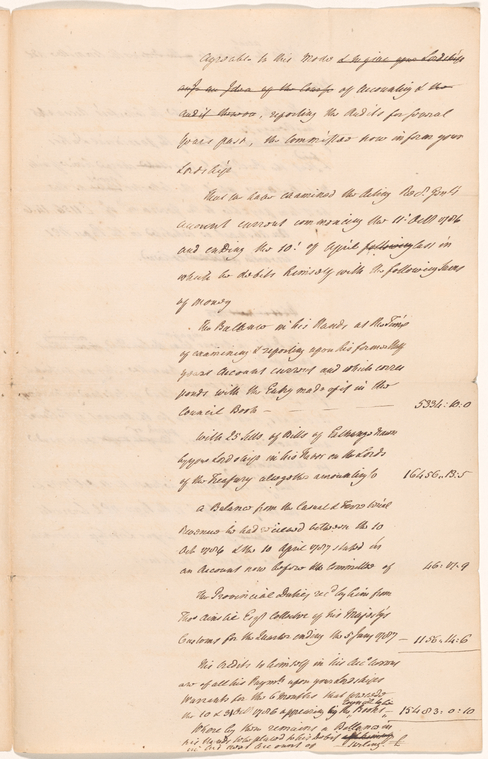 Agreeable to this Mode & to give your Lordship
an Idea of the of Accounting & the
Audit thereon, reporting the Audits for several
Years past, the Committee now inform your
Lordship
That we have examined the Acting Rec.r Gen.ls
Account current commencing the 11.t Oct.r 1786
and ending the 10.t of April following last in
which he debits himself with the following Sums
of Money
The Ballance in his Hands at the Time
of examining & reporting upon his former Half
years Account current and which corres
ponds with the Entry made of it in the
Council Book — 5334:10:0
With 25 Setts of Bills of Exchange drawn
by your Lordship in his Favor on the Lords
of the Treasury altogether amounting to 16456:13:5
A Balance from the Casual & Territorial
Revenue he had received between the 10
Oct. 1786 & the 10 April 1787 stated in
an Account now before the Committee of 46:17:9
The Provincial Duties rec.d by him from
Thos Ainslie Esq.r Collector of his Majesty's
Customs for the Quarter ending the 5 Jany 1787 — 1156:14:6
He Credits to himself in his Acc.t
of all his Paym.ts upon your Lordships
Warrants for the 6 Months that
the 10 Oct.r 1786 appearing by the Books 15483:0:10
Whereby there remains a Ballance in
his Hands to be placed to his debit
in his next Account of Sterling £